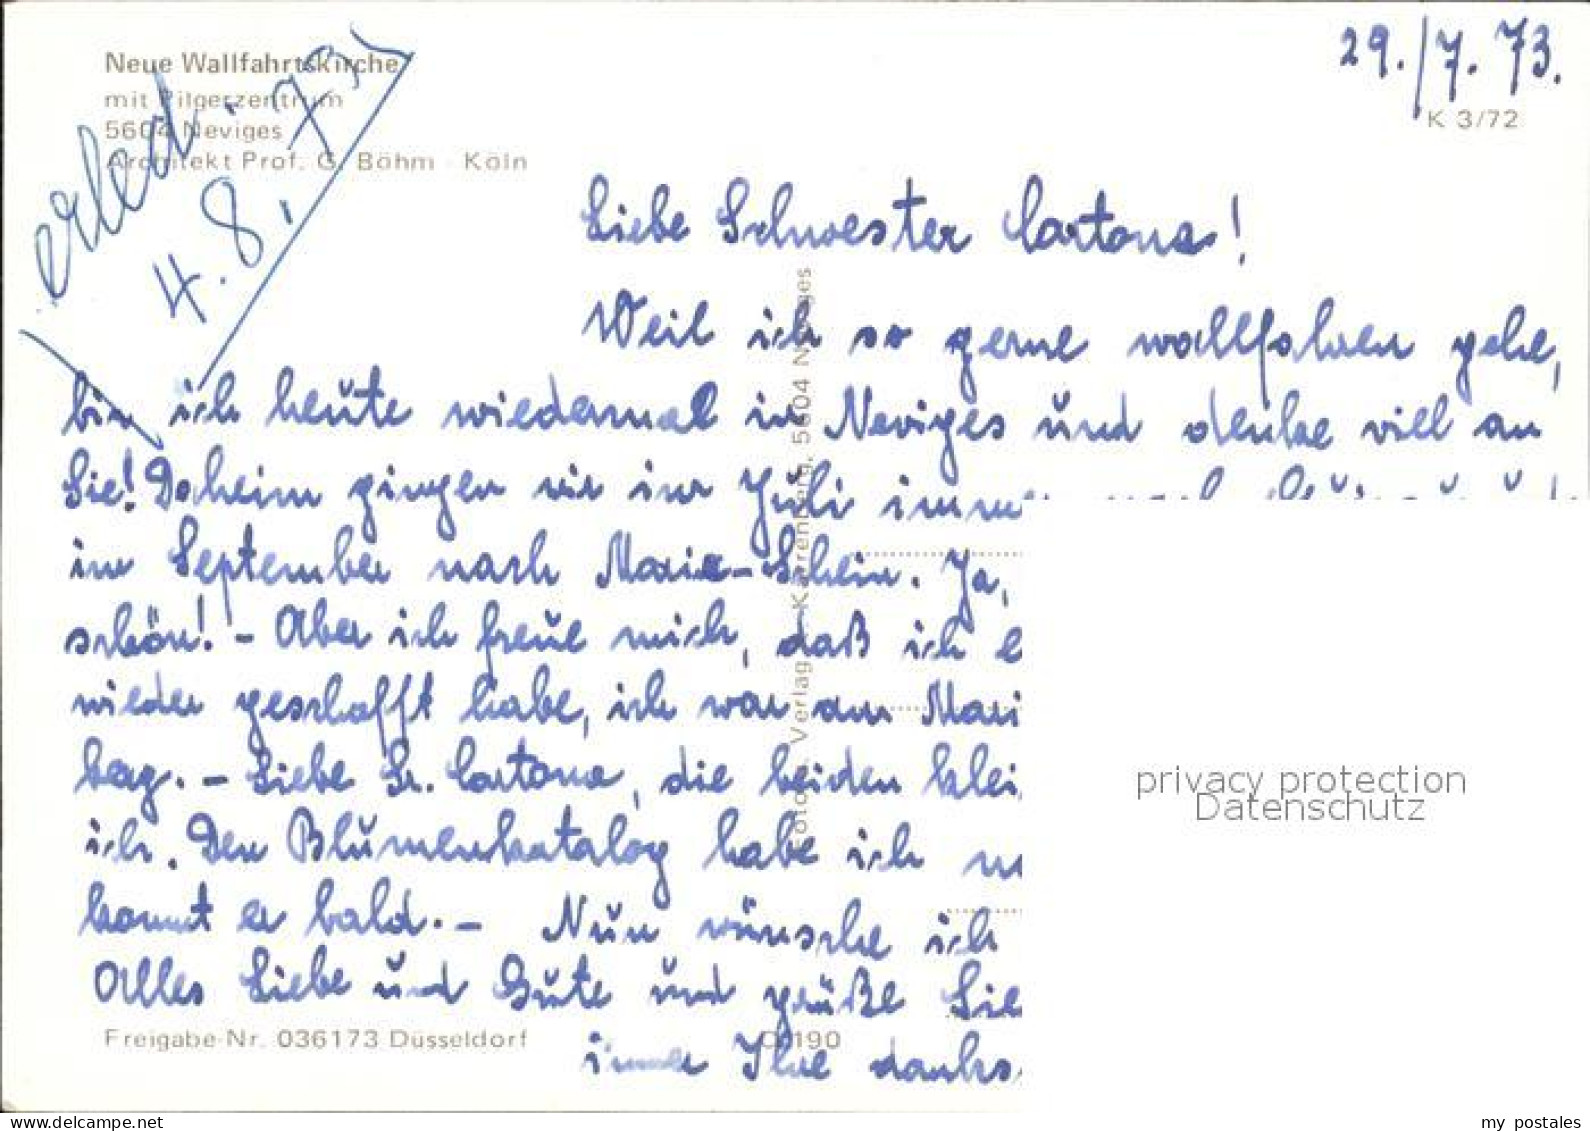 Neue Wallfahrtskirche
mit Pilgerzentrum
5604 Neviges
Architekt Prof. G. Böhm · Köln
erled.
4.8.73
29./7.73.
K 3/72
Liebe Schwester Cortona!
Weil ich so gerne wallfahren gehe,
bin ich heute wiedermal in Neviges und denke viell an
Sie! Daheim gingen wir im Juli immer nach
im September nach Maria-Schein. Ja,
schön! - Aber ich freue mich, daß ich e
wieder geschafft habe, ich war am Mari
berg. - Liebe Sr. Cortona, die beiden klei
ich. Den Blumenkatalog habe ich
kommt er bald. - Nun wünsche ich
Alles Liebe und Gute und grüße Sie
immer Ihre danks
Verlag Karrenberg, 5604 Neviges
Freigabe-Nr. 036173 Düsseldorf
190
privacy protection
Datenschutz
my postales